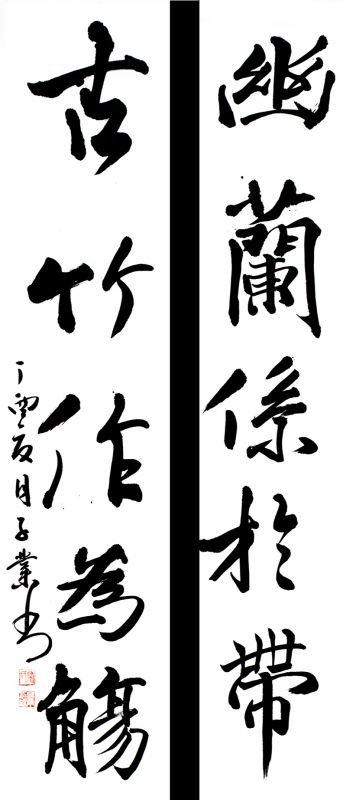 幽蘭係於帶
古竹作為觴
丁酉夏月子業书